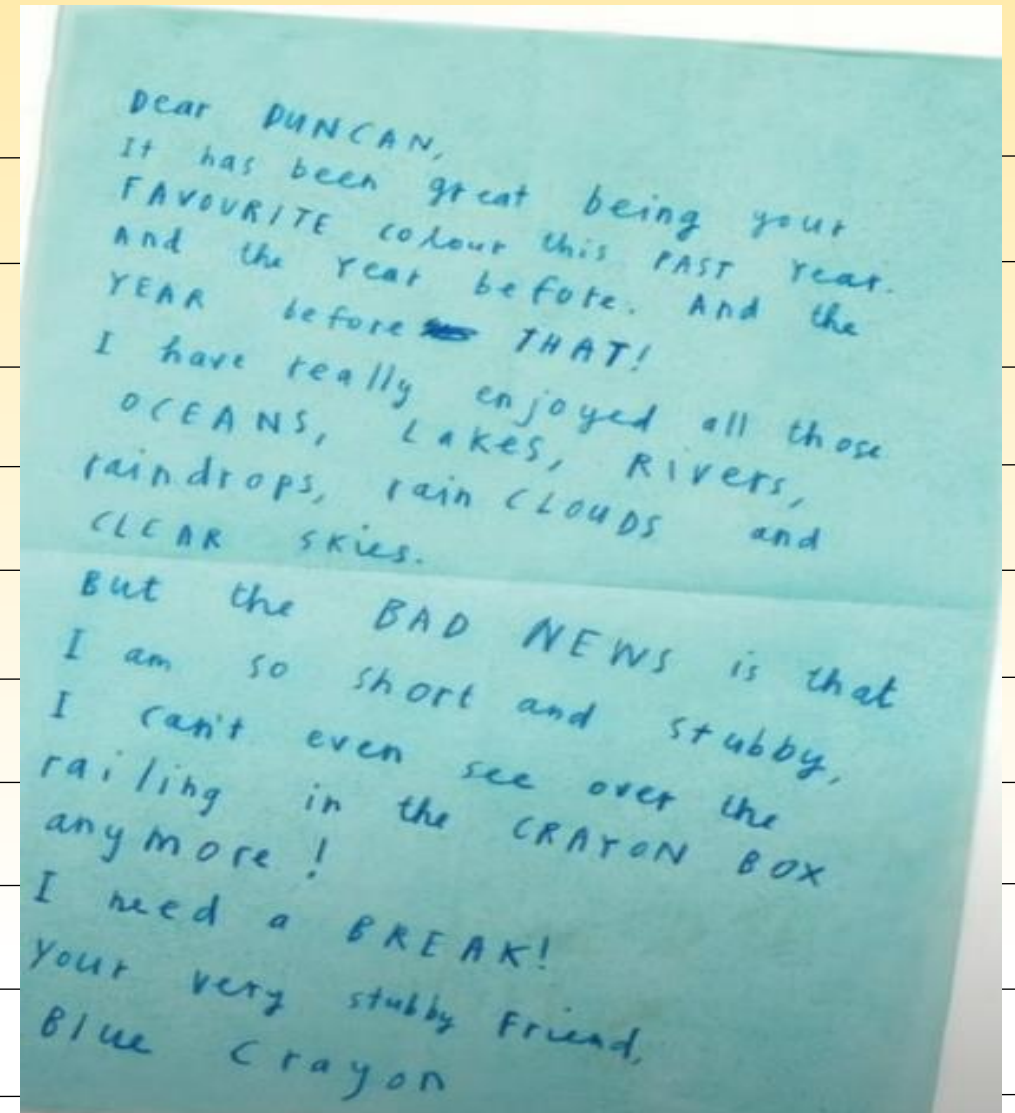 Dear DUNCAN,
It has been great being your
FAVOURITE colour this PAST Year.
And the Year before. And the
YEAR before THAT!
I have really enjoyed all those
OCEANS, Lakes, RiVers,
raindrops, rain CLOUDS and
CLEAR skies.
But the BAD NEWS is that
I am so short and stubby,
I can't even see over the
railing in the CRAYON BOX
anymore!
I need a BREAK!
Your very stubby Friend,
Blue Crayon